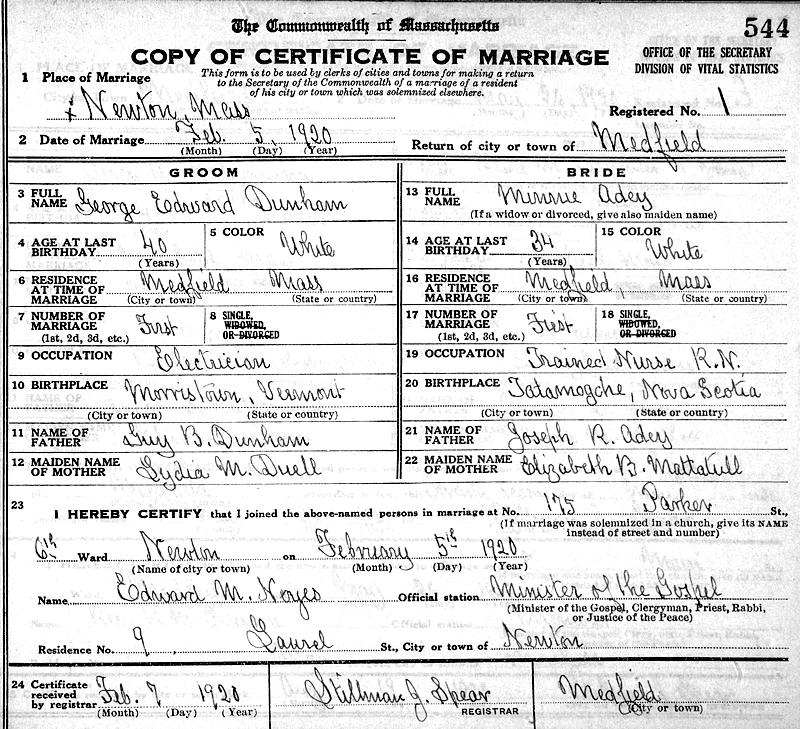 The Commonwealth of Massachusetts
544
COPY OF CERTIFICATE OF MARRIAGE
OFFICE OF THE SECRETARY
DIVISION OF VITAL STATISTICS
This form is to be used by clerks of cities and towns for making a return
to the Secretary of the Commonwealth of a marriage of a resident
of his city or town which was solemnized elsewhere.
1 Place of Marriage
Newton, Mass
Registered No. 1
2 Date of Marriage Feb. 5, 1920
(Month) (Day) (Year)
Return of city or town of Medfield
GROOM
3 FULL NAME George Edward Dunham
4 AGE AT LAST BIRTHDAY 40
(Years)
5 COLOR White
6 RESIDENCE AT TIME OF MARRIAGE Medfield Mass
(City or town) (State or country)
7 NUMBER OF MARRIAGE First
(1st, 2d, 3d, etc.)
8 SINGLE, WIDOWED, OR DIVORCED
9 OCCUPATION Electrician
10 BIRTHPLACE Morristown, Vermont
(City or town) (State or country)
11 NAME OF FATHER Guy B. Dunham
12 MAIDEN NAME OF MOTHER Lydia M. Duell
BRIDE
13 FULL NAME Minnie Adey
(If a widow or divorced, give also maiden name)
14 AGE AT LAST BIRTHDAY 34
(Years)
15 COLOR White
16 RESIDENCE AT TIME OF MARRIAGE Medfield, Mass
(City or town) (State or country)
17 NUMBER OF MARRIAGE First
(1st, 2d, 3d, etc.)
18 SINGLE, WIDOWED, OR DIVORCED
19 OCCUPATION Trained Nurse R.N.
20 BIRTHPLACE Tatamogche, Nova Scotia
(City or town) (State or country)
21 NAME OF FATHER Joseph R. Adey
22 MAIDEN NAME OF MOTHER Elizabeth B. Mattatull
23 I HEREBY CERTIFY that I joined the above-named persons in marriage at No. 175 Parker St.,
(If marriage was solemnized in a church, give its NAME
instead of street and number)
6th Ward Newton on February 5th 1920
(Name of city or town) (Month) (Day) (Year)
Name Edward M. Noyes Official station Minister of the Gospel
(Minister of the Gospel, Clergyman, Priest, Rabbi,
or Justice of the Peace)
Residence No. 9, Laurel St., City or town of Newton
24 Certificate received by registrar Feb. 7 1920
(Month) (Day) (Year)
Stillman J. Spear
REGISTRAR
Medfield
(City or town)